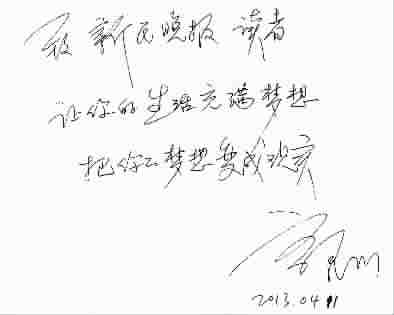 致新民晚报读者
让你的生活充满梦想
把你的梦想变成现实
2013.04.11